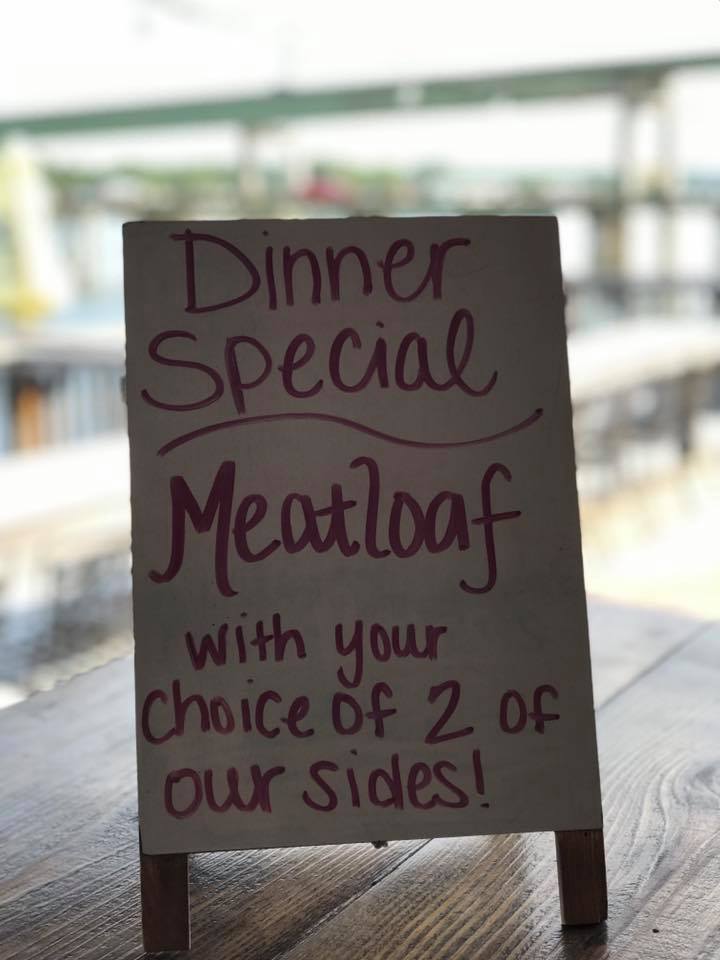 Dinner
Special
Meatloaf
with your
choice of 2 of
our sides!